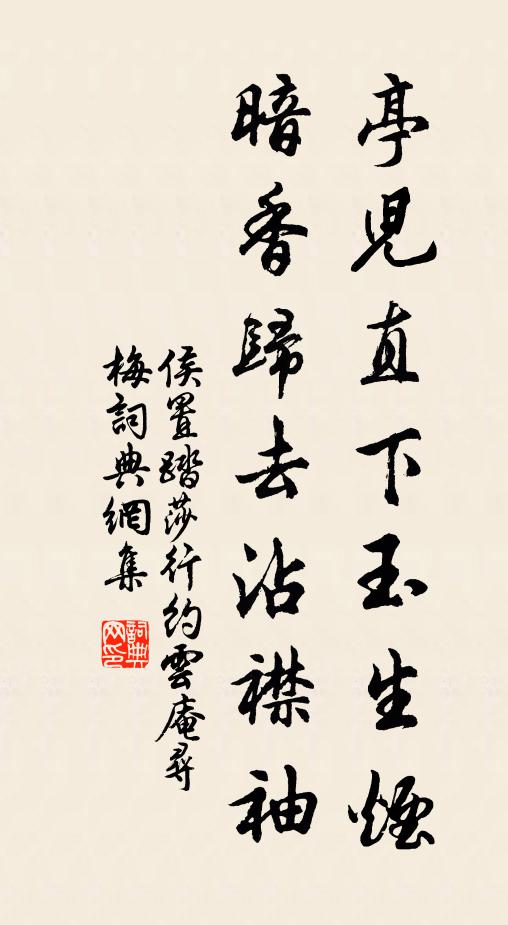 亭兒直下玉生煙
暗香歸去沾襟袖
侯置踏莎行約雲庵尋
梅詞典網集
詞典网印